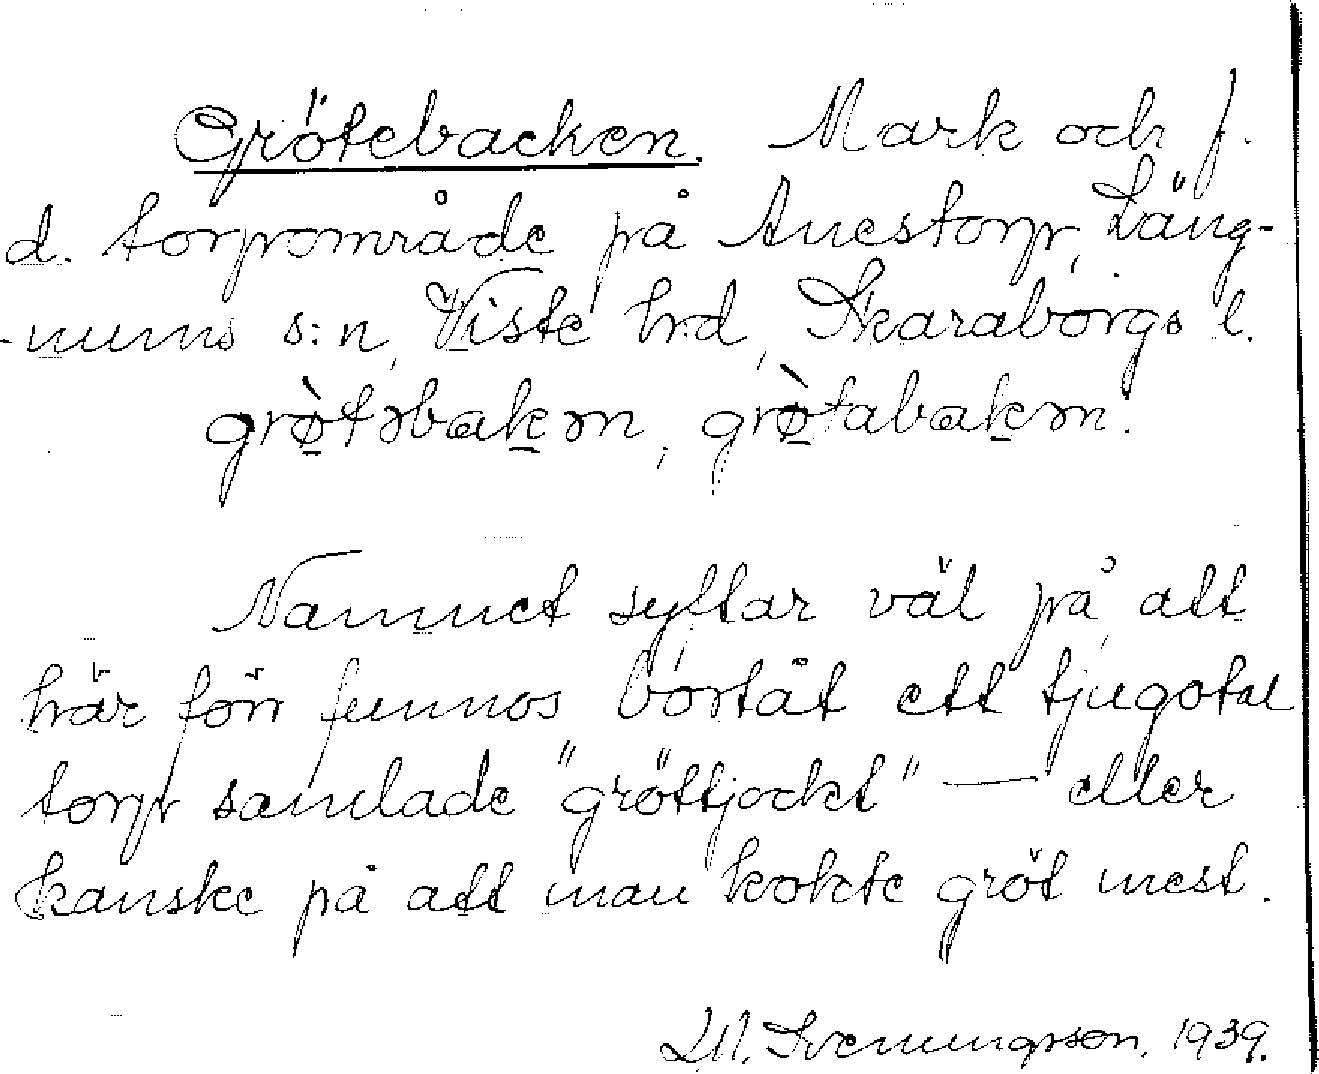 Grötebacken. Mark och f.
d. torpområde på Anestorp, Läng-
-nums s:n, Viste hrd, Skaraborgs l.
grø̀təbakən, grø̀tabakən.
Namnet syftar väl på att
här förr funnos bortåt ett tjugotal
torp samlade "gröttjockt" — eller
kanske på att man kokte gröt mest.
Svenungsson. 1939.